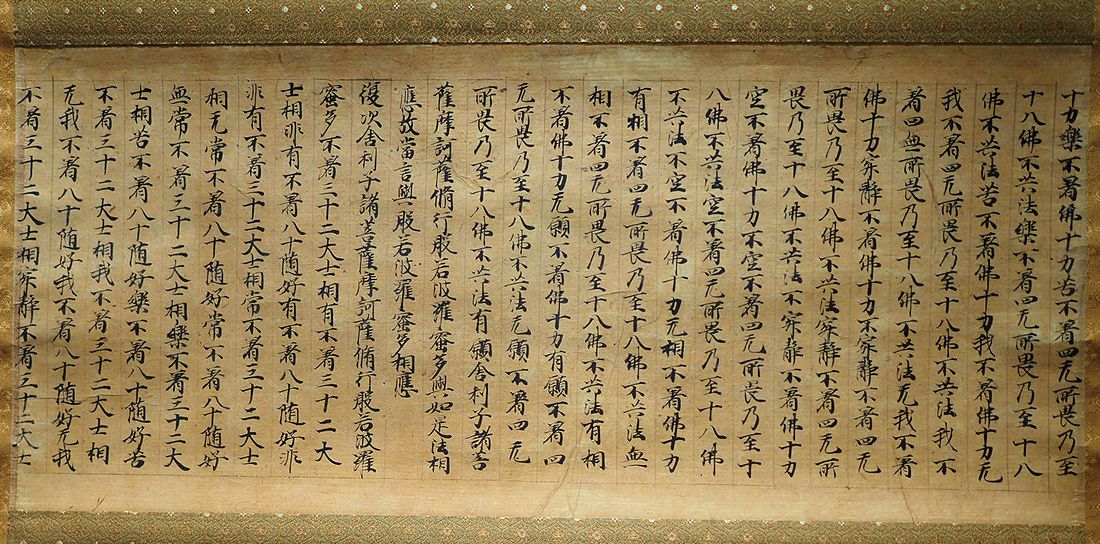 十力樂不著佛十力苦不著四无所畏乃至
十八佛不共法樂不著四无所畏乃至十八
佛不共法苦不著佛十力我不著佛十力无
我不著四无所畏乃至十八佛不共法我不
著四無所畏乃至十八佛不共法无我不著
佛十力寂靜不著佛十力不寂靜不著四无
所畏乃至十八佛不共法寂靜不著四无所
畏乃至十八佛不共法不寂靜不著佛十力
空不著佛十力不空不著四无所畏乃至十
八佛不共法空不著四无所畏乃至十八佛
不共法不空不著佛十力无相不著佛十力
有相不著四无所畏乃至十八佛不共法無
相不著四无所畏乃至十八佛不共法有相
不著佛十力无願不著佛十力有願不著四
无所畏乃至十八佛不共法无願不著四无
所畏乃至十八佛不共法有願舍利子諸菩
薩摩訶薩脩行般若波羅蜜多與如是法相
應故當言與般若波羅蜜多相應
復次舍利子諸菩薩摩訶薩脩行般若波羅
蜜多不著三十二大士相有不著三十二大
士相非有不著八十随好有不著八十随好非
非有不著三十二大士相常不著三十二大士
相无常不著八十随好常不著八十随好
無常不著三十二大士相樂不著三十二大
士相苦不著八十随好樂不著八十随好苦
不著三十二大士相我不著三十二大士相
无我不著八十随好我不著八十随好无我
不著三十二大士相寂靜不著三十二大士